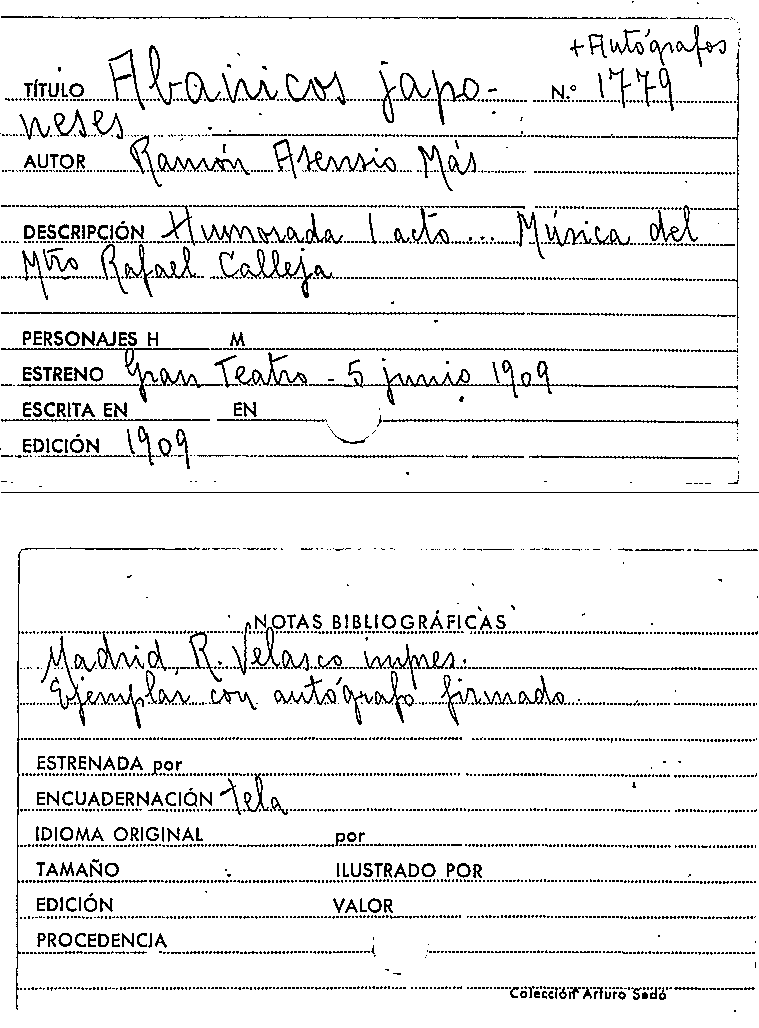 + Autógrafos
TÍTULO Abanicos japo- N.º 1779
neses
AUTOR Ramón Asensio Más
DESCRIPCIÓN Humorada 1 acto... Música del
Mtro Rafael Calleja
PERSONAJES H M
ESTRENO Gran Teatro - 5 junio 1909
ESCRITA EN EN
EDICIÓN 1909
NOTAS BIBLIOGRÁFICAS
Madrid, R. Velasco impres.
Ejemplar con autógrafo firmado.
ESTRENADA por
ENCUADERNACIÓN tela
IDIOMA ORIGINAL por
TAMAÑO ILUSTRADO POR
EDICIÓN VALOR
PROCEDENCIA
Colección Arturo Sedó